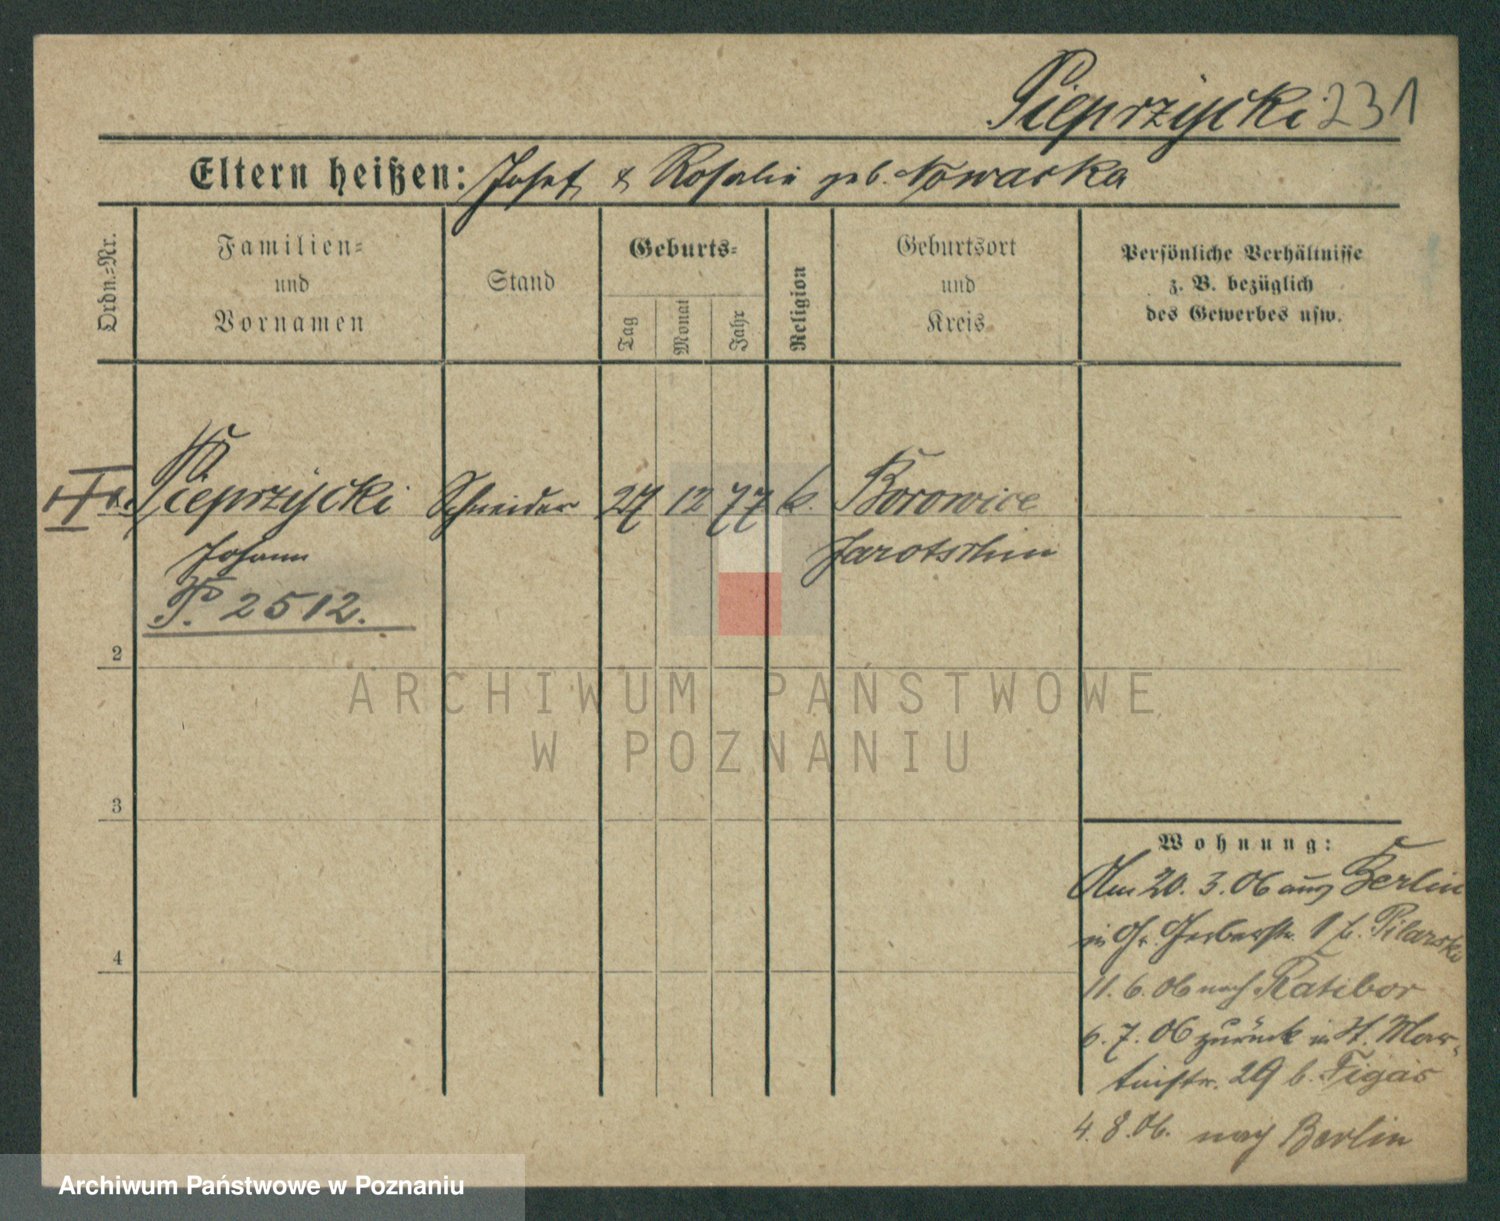 Pieprzycki 231
Eltern heißen: Josef & Rosalie geb. Nowacka
Ordn.-Nr.
Familien-
und
Vornamen
Stand
Geburts-
Tag
Monat
Jahr
Religion
Geburtsort
und
Kreis
Persönliche Verhältnisse
z. B. bezüglich
des Gewerbes usw.
Pieprzycki Schneider 27 12 77 k. Borowice
Johann Jarotschin
P. 2512.
2
3
4
ARCHIWUM PAŃSTWOWE
W POZNANIU
Wohnung:
Am 20. 3. 06 aus Berlin
in Gr. Gerberstr. 1 b. Pilarski
11. 6. 06 nach Ratibor
6. 7. 06 zurück in St. Mar-
tinstr. 29 b. Figas
4. 8. 06. nach Berlin
Archiwum Państwowe w Poznaniu